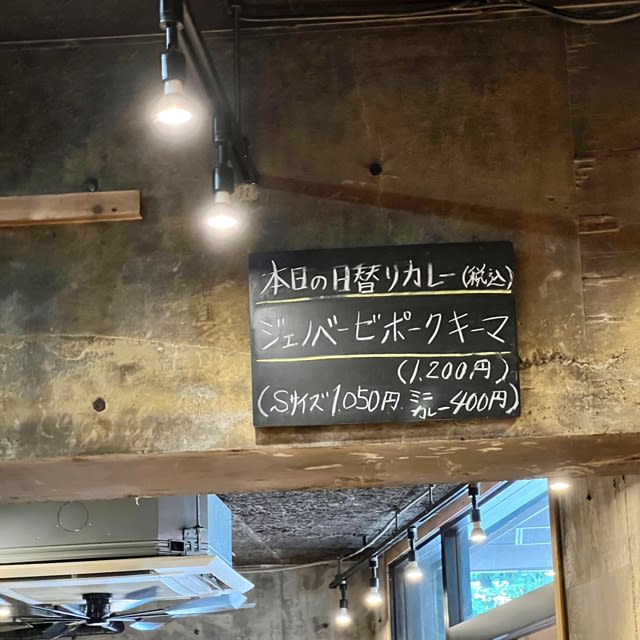 本日の日替りカレー(税込)
ジェノベーゼポークキーマ
(1,200円)
(Sサイズ1,050円.ミニカレー400円)